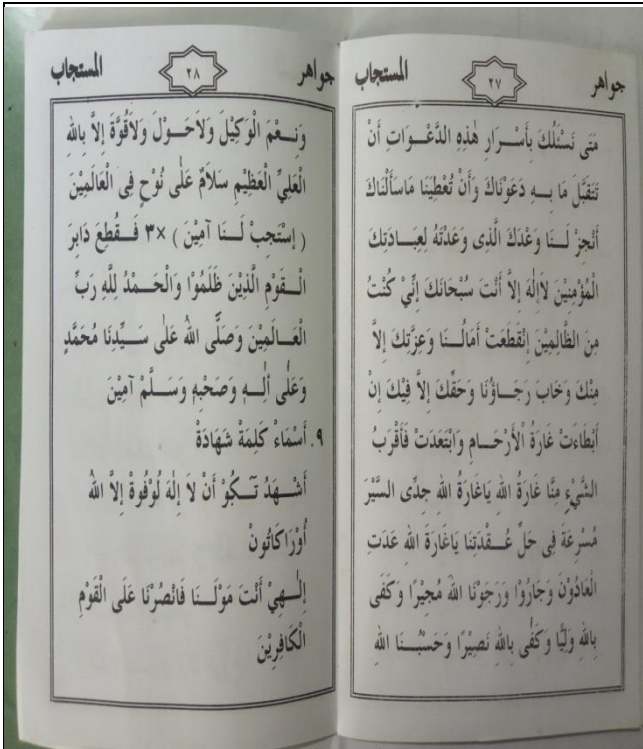 جواهر ٢٧ المستجاب
مَتَى نَسْئَلُكَ بِأَسْرَارِ هٰذِهِ الدَّعْوَاتِ أَنْ
تَتَقَبَّلَ مَا بِهِ دَعَوْنَاكَ وَأَنْ تُعْطِيَنَا مَاسَأَلْنَاكَ
أَنْجِزْ لَنَا وَعْدَكَ الَّذِى وَعَدْتَهُ لِعِبَادَتِكَ
الْمُؤْمِنِيْنَ لَاإِلٰهَ إِلاَّ أَنْتَ سُبْحَانَكَ إِنِّيْ كُنْتُ
مِنَ الظَّالِمِيْنَ إِنْقَطَعَتْ أَمَالُنَا وَعِزَّتِكَ إِلاَّ
مِنْكَ وَخَابَ رَجَاؤُنَا وَحَقِّكَ إِلاَّ فِيْكَ إِنْ
أَبْطَاءَتْ غَارَةُ الْأَرْحَامِ وَابْتَعَدَتْ فَأَقْرَبُ
الشَّيْءِ مِنَّا غَارَةُ اللهِ يَاغَارَةُ اللهِ جِدِّى السَّيْرَ
مُسْرِعَةً فِى حَلِّ عُقْدَتِنَا يَاغَارَةَ اللهِ عَدَتِ
الْعَادُوْنَ وَجَارُوْا وَرَجَوْنَا اللهَ مُجِيْرًا وَكَفَى
بِاللهِ وَلِيًّا وَكَفَى بِاللهِ نَصِيْرًا وَحَسْبُنَا اللهِ
جواهر ٢٨ المستجاب
وَنِعْمَ الْوَكِيْلُ وَلاَحَوْلَ وَلاَقُوَّةَ إِلاَّ بِاللهِ
الْعَلِيِّ الْعَظِيْمِ سَلاَمٌ عَلَى نُوْحٍ فِى الْعَالَمِيْنَ
( إِسْتَجِبْ لَنَا آمِيْنَ ) ×٣ فَقُطِعَ دَابِرَ
الْقَوْمِ الَّذِيْنَ ظَلَمُوْا وَالْحَمْدُ لِلّٰهِ رَبِّ
الْعَالَمِيْنَ وَصَلَّى اللهُ عَلَى سَيِّدِنَا مُحَمَّدٍ
وَعَلَى أٰلِهِ وَصَحْبِهِ وَسَلَّمْ آمِيْنَ
٩. أَسْمَاءْ كَلِمَةْ شَهَادَةْ
أَشْهَدُ تَكُوْ أَنْ لاَ إِلٰهَ لُوْفُوةْ إِلاَّ اللهُ
أُوْرَاكَاتُونْ
إِلٰهِيْ أَنْتَ مَوْلَنَا فَانْصُرْنَا عَلَى الْقَوْمِ
الْكَافِرِيْنَ